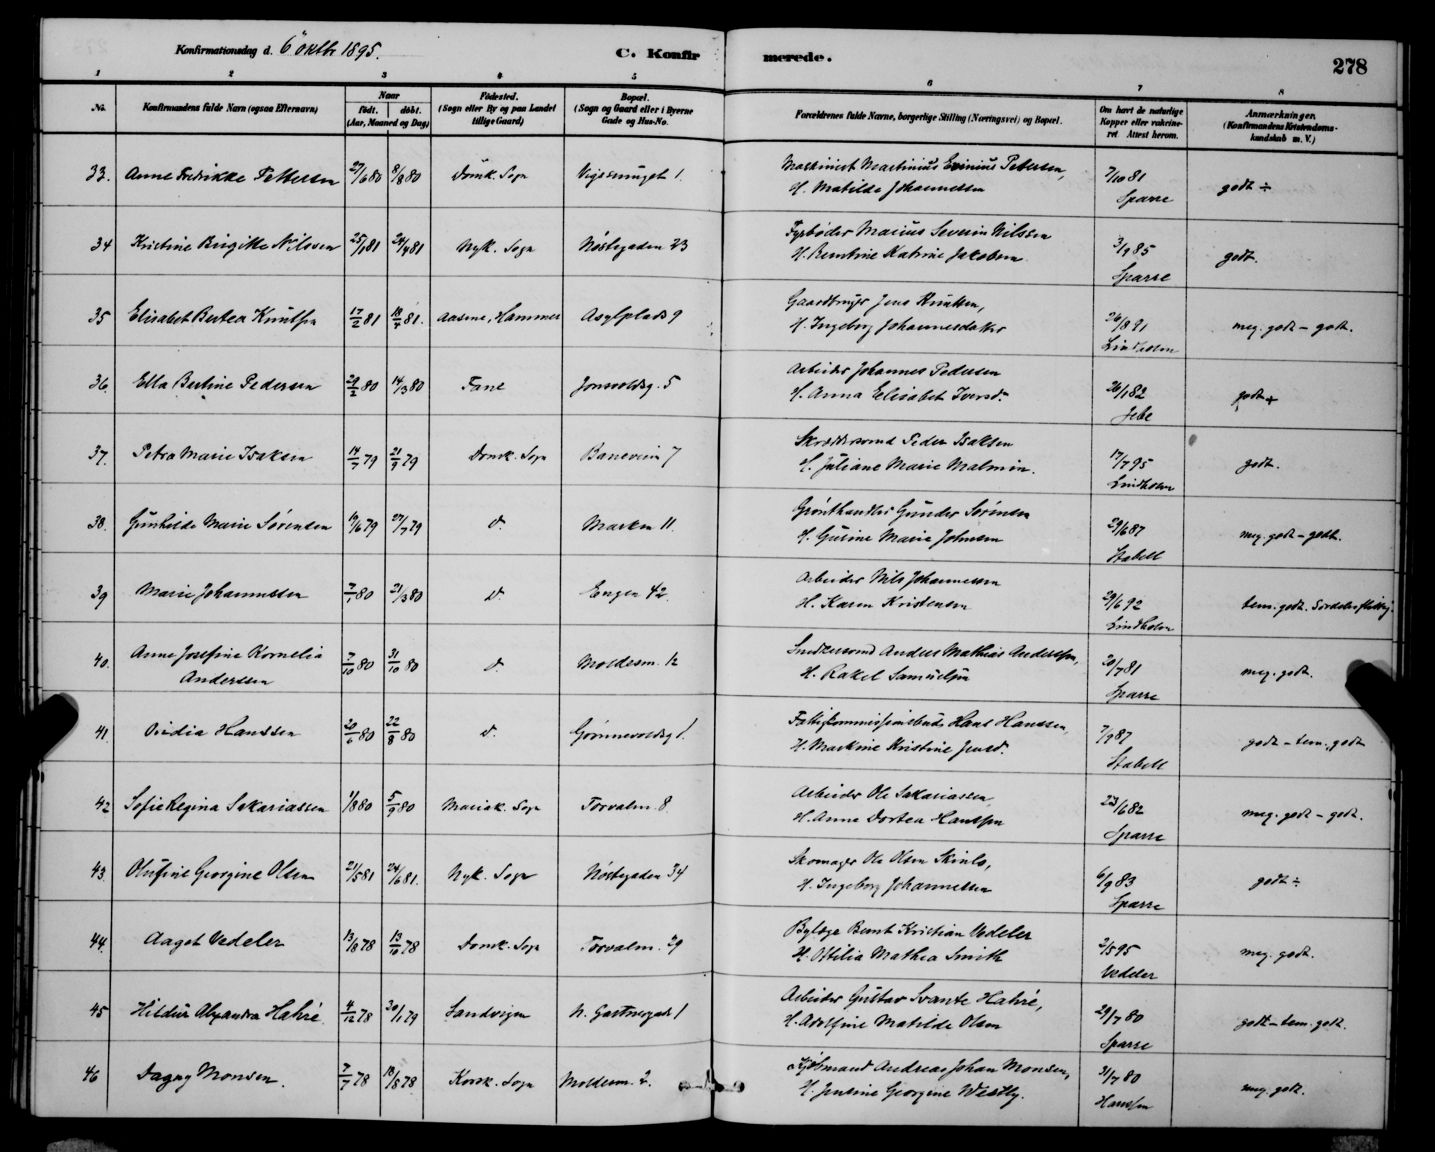 Konfirmationsdag d. 6 oktbr 1895.
C. Konfirmerede.
278
1 2 3 4 5 6 7 8
No.
Konfirmandens fulde Navn (ogsaa Efternavn)
Naar
født. døbt.
(Aar, Maaned og Dag)
Fødested.
(Sogn eller By og paa Landet
tillige Gaard)
Bopæl.
(Sogn og Gaard eller i Byerne
Gade og Hus-No.
Forældrenes fulde Navne, borgerlige Stilling (Næringsvei) og Bopæl.
Om havt de naturlige
Kopper eller vakcine-
ret Attest herom.
Anmærkninger
(Konfirmandens Kristendoms-
kundskab m. V.)
33. Anne Fredrikke Pettersen 27/6 80 8/8 80 Domk. Sogn 1. Maskinist Martinius Petersen,
H. Matilde Johannessen 7/10 81
Sparre godt ÷
34 Kristine Birgitte Nilssen 25/1 81 24/4 81 Nyk. Sogn Nøstegaden 23 Fyrbøder Marius Severin Nilssen
H. Berntine Katrine Jakobsen 3/9 85
Sparre godt.
35 Elisabet Bertea Knutsen 17/2 81 18/4 81. Aasene, Hammer Asylplads 9 Gaardbruger Jens Knutsen,
H. Ingeborg Johannesdatter 26/8 91
Lindholm meg. godt - godt.
36. Ella Bertine Pedersen 29/2 80 14/3 80 Fane Jonsvoldsg. 5 Arbeider Johannes Pedersen
H. Anna Elisabet Iversd. 26/1 82
Jebe godt +
37. Petra Marie Isaksen 14/7 79 21/9 79 Domk. Sogn Baneveien 7 Skræddersvend Peder Isaksen
H. Juliane Marie Malmin. 17/7 95
Lindholm godt.
38. Gunhilde Marie Sørensen 19/6 79 27/7 79 d. Marken 11. Grønthandler Gunder Sørensen
H. Gurine Marie Johnsen 29/6 87
Stabell meg. godt - godt.
39 Marie Johannessen 7/1 80 21/3 80 d. Engen 42. Arbeider Nils Johannessen
H. Karen Kristensen 29/6 92
Lindholm tem. godt. Særdeles flittig.
40. Anne Josefine Kornelia
Anderssen 7/10 80 31/10 80 d. Moldesm. 12 Snedkersvend Anders Mathias Anderssen,
H. Rakel Samuelsen 20/7 81
Sparre meg. godt.
41. Ovidia Hanssen 20/6 80 22/8 80 d. Grønnevoldsg 1. Fattigkommissionsbud Hans Hanssen,
H. Martine Kristine Jensd. 7/9 87
Stabell godt - tem. godt
42 Sofie Regina Sakariassen 1/8 80 5/9 80 Mariak. Sogn Torvalm. 8 Arbeider Ole Sakariassen
H. Anne Dortea Hanssen 23/6 82
Sparre meg. godt - godt.
43. Olufine Georgine Olsen 21/5 81 24/6 81. Nyk. Sogn Nøstegaden 34 Skomager Ole Olsen
H. Ingeborg Johannessen 6/9 83
Sparre godt ÷
44. Aagot Vedeler 13/8 78 13/10 78 Domk. Sogn Torvalm. 29 Byløge Bernt Kristian Vedeler
H. Ottilia Mathea Smith 2/5 95
Vedeler meg. godt.
45 Hildur Alexandra Hahré 4/12 78 30/1 79 Sandvigen N. Gartnergade 1 Arbeider Gustav Svante Hahré,
H. Adolfine Matilde Olsen 29/7 80
Sparre godt - tem. godt.
46 Dagny Monsen. 7/7 78 18/8 78 Korsk. Sogn Moldesm. 2. Kjøbmand Andreas Johan Monsen,
H. Jensine Georgine Westby. 31/7 80
Hanssen meg. godt.